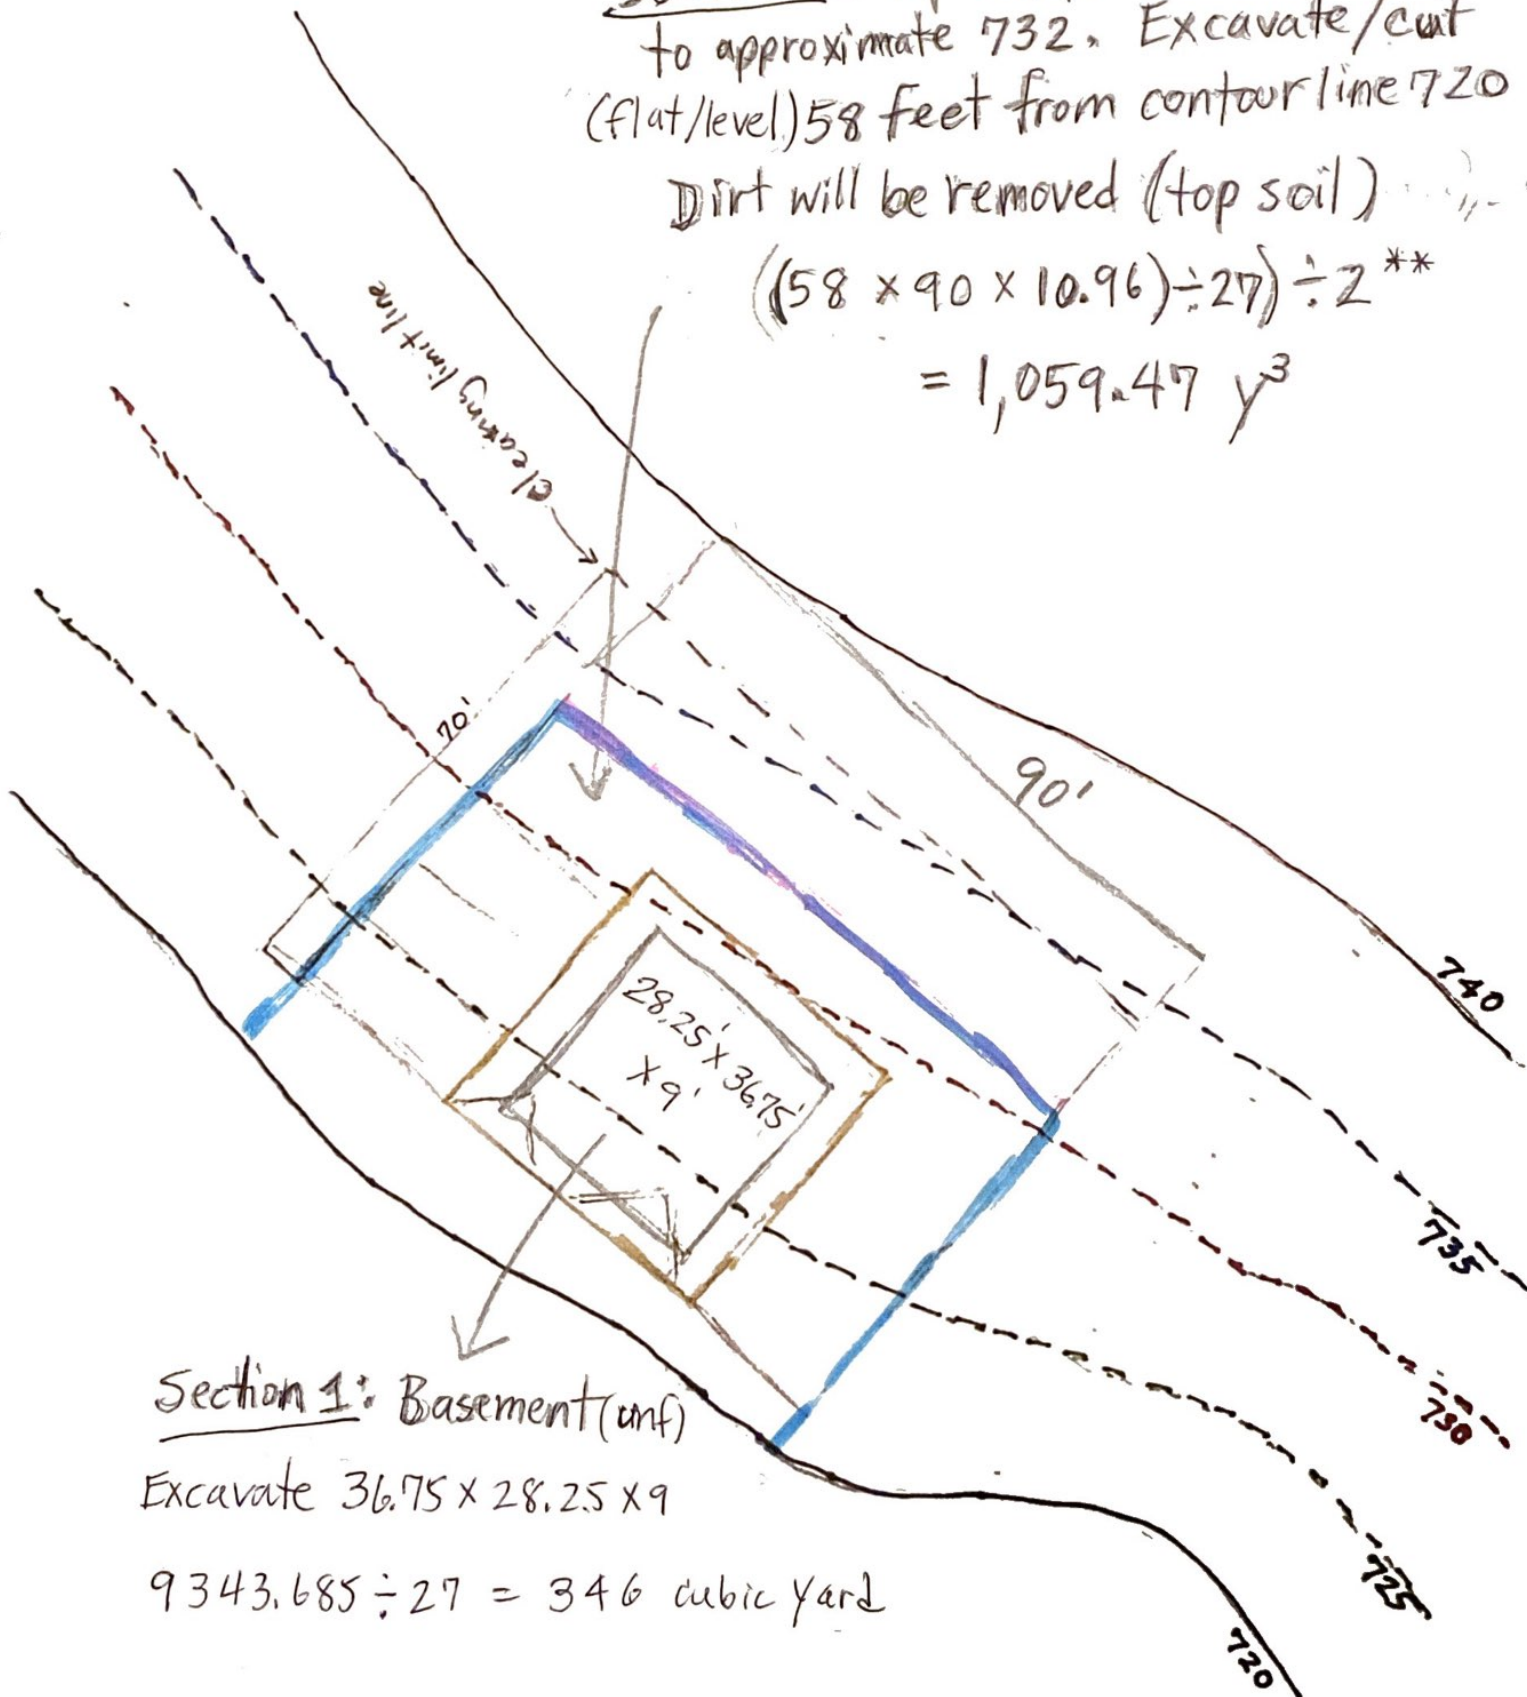 to approximate 732. Excavate/cut
(flat/level) 58 feet from contour line 720
Dirt will be removed (top soil)
((58 × 90 × 10.96)÷27)÷2**
= 1,059.47 y³
clearing limit line
70'
90'
740
28.25' × 36.75'
× 9'
735
730
Section 1: Basement (unf)
Excavate 36.75 × 28.25 × 9
725
9343.685÷27 = 346 cubic yard
720